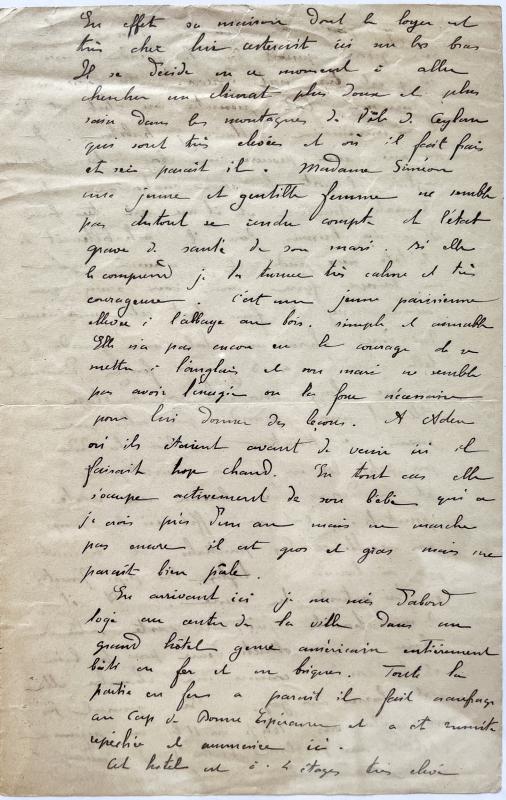 En effet sa maison dont le loyer est
très cher lui
Il se décide en ce moment à aller
chercher un climat plus doux et plus
sain dans les montagnes de l'île de Ceylan
qui sont très élevées et où il fait frais
et sein parait il. Madame Siméon
une jeune et gentille femme ne semble
pas dutout se rendre compte de l'état
grave de santé de son mari. Si elle
le comprend je la trouve très calme et très
courageuse. C'est une jeune parisienne
élevée à l'abbaye au bois. simple et aimable
Elle n'a pas encore eu le courage de se
mettre à l'anglais et son mari ne semble
pas avoir l'énergie ou la force nécessaire
pour lui donner des leçons. A Aden
où ils étaient avant de venir ici il
faisait trop chaud. En tout cas elle
s'occupe activement de son bébé qui a
je crois près d'un an mais ne marche
pas encore il est gros et gras mais me
parait bien pâle.
En arrivant ici je me suis d'abord
logé au centre de la ville dans un
grand hôtel genre américain entièrement
bâti en fer et en briques. Toute la
partie en fer a parait il fait naufrage
au Cap de Bonne Espérance et a été ensuite
repêchée et ici.
Cet hôtel est à 4 étages très élevés